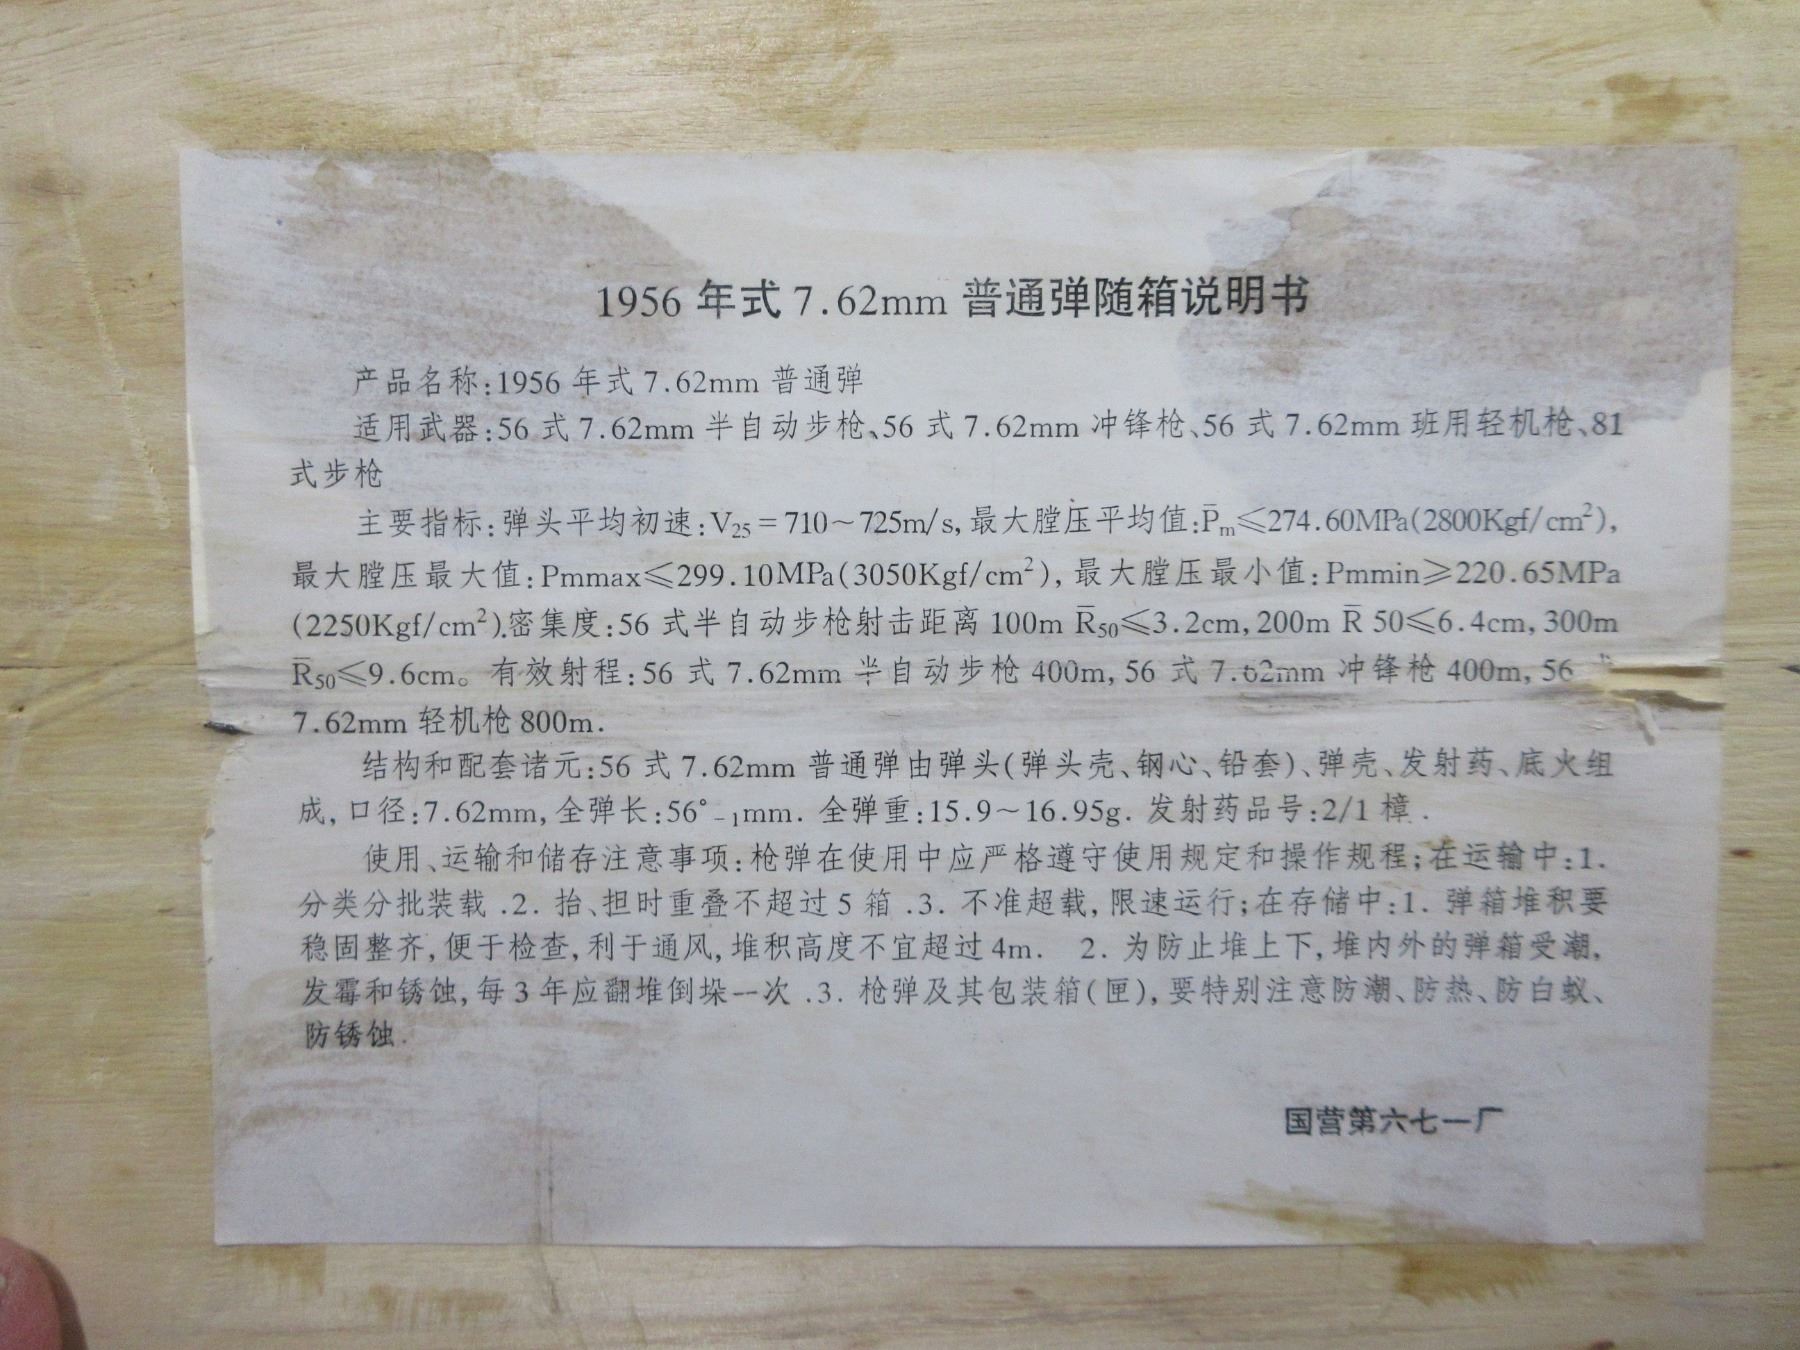 1956 年式 7.62mm 普通弹随箱说明书
产品名称:1956 年式 7.62mm 普通弹
适用武器:56 式 7.62mm 半自动步枪、56 式 7.62mm 冲锋枪、56 式 7.62mm 班用轻机枪、81
式步枪
主要指标:弹头平均初速:V₂₅=710~725m/s,最大膛压平均值:P̄ₘ≤274.60MPa(2800Kgf/cm²),
最大膛压最大值:Pmmax≤299.10MPa(3050Kgf/cm²),最大膛压最小值:Pmmin≥220.65MPa
(2250Kgf/cm²).密集度:56 式半自动步枪射击距离 100m R̄₅₀≤3.2cm,200m R̄ 50≤6.4cm,300m
R̄₅₀≤9.6cm。有效射程:56 式 7.62mm 半自动步枪 400m,56 式 7.62mm 冲锋枪 400m,56 式
7.62mm 轻机枪 800m.
结构和配套诸元:56 式 7.62mm 普通弹由弹头(弹头壳、钢心、铅套)、弹壳、发射药、底火组
成,口径:7.62mm,全弹长:56°₋₁mm. 全弹重:15.9~16.95g. 发射药品号:2/1 樟.
使用、运输和储存注意事项:枪弹在使用中应严格遵守使用规定和操作规程;在运输中:1.
分类分批装载.2. 抬、担时重叠不超过 5 箱.3. 不准超载,限速运行;在存储中:1. 弹箱堆积要
稳固整齐,便于检查,利于通风,堆积高度不宜超过 4m. 2. 为防止堆上下,堆内外的弹箱受潮,
发霉和锈蚀,每 3 年应翻堆倒垛一次.3. 枪弹及其包装箱(匣),要特别注意防潮、防热、防白蚁、
防锈蚀.
国营第六七一厂